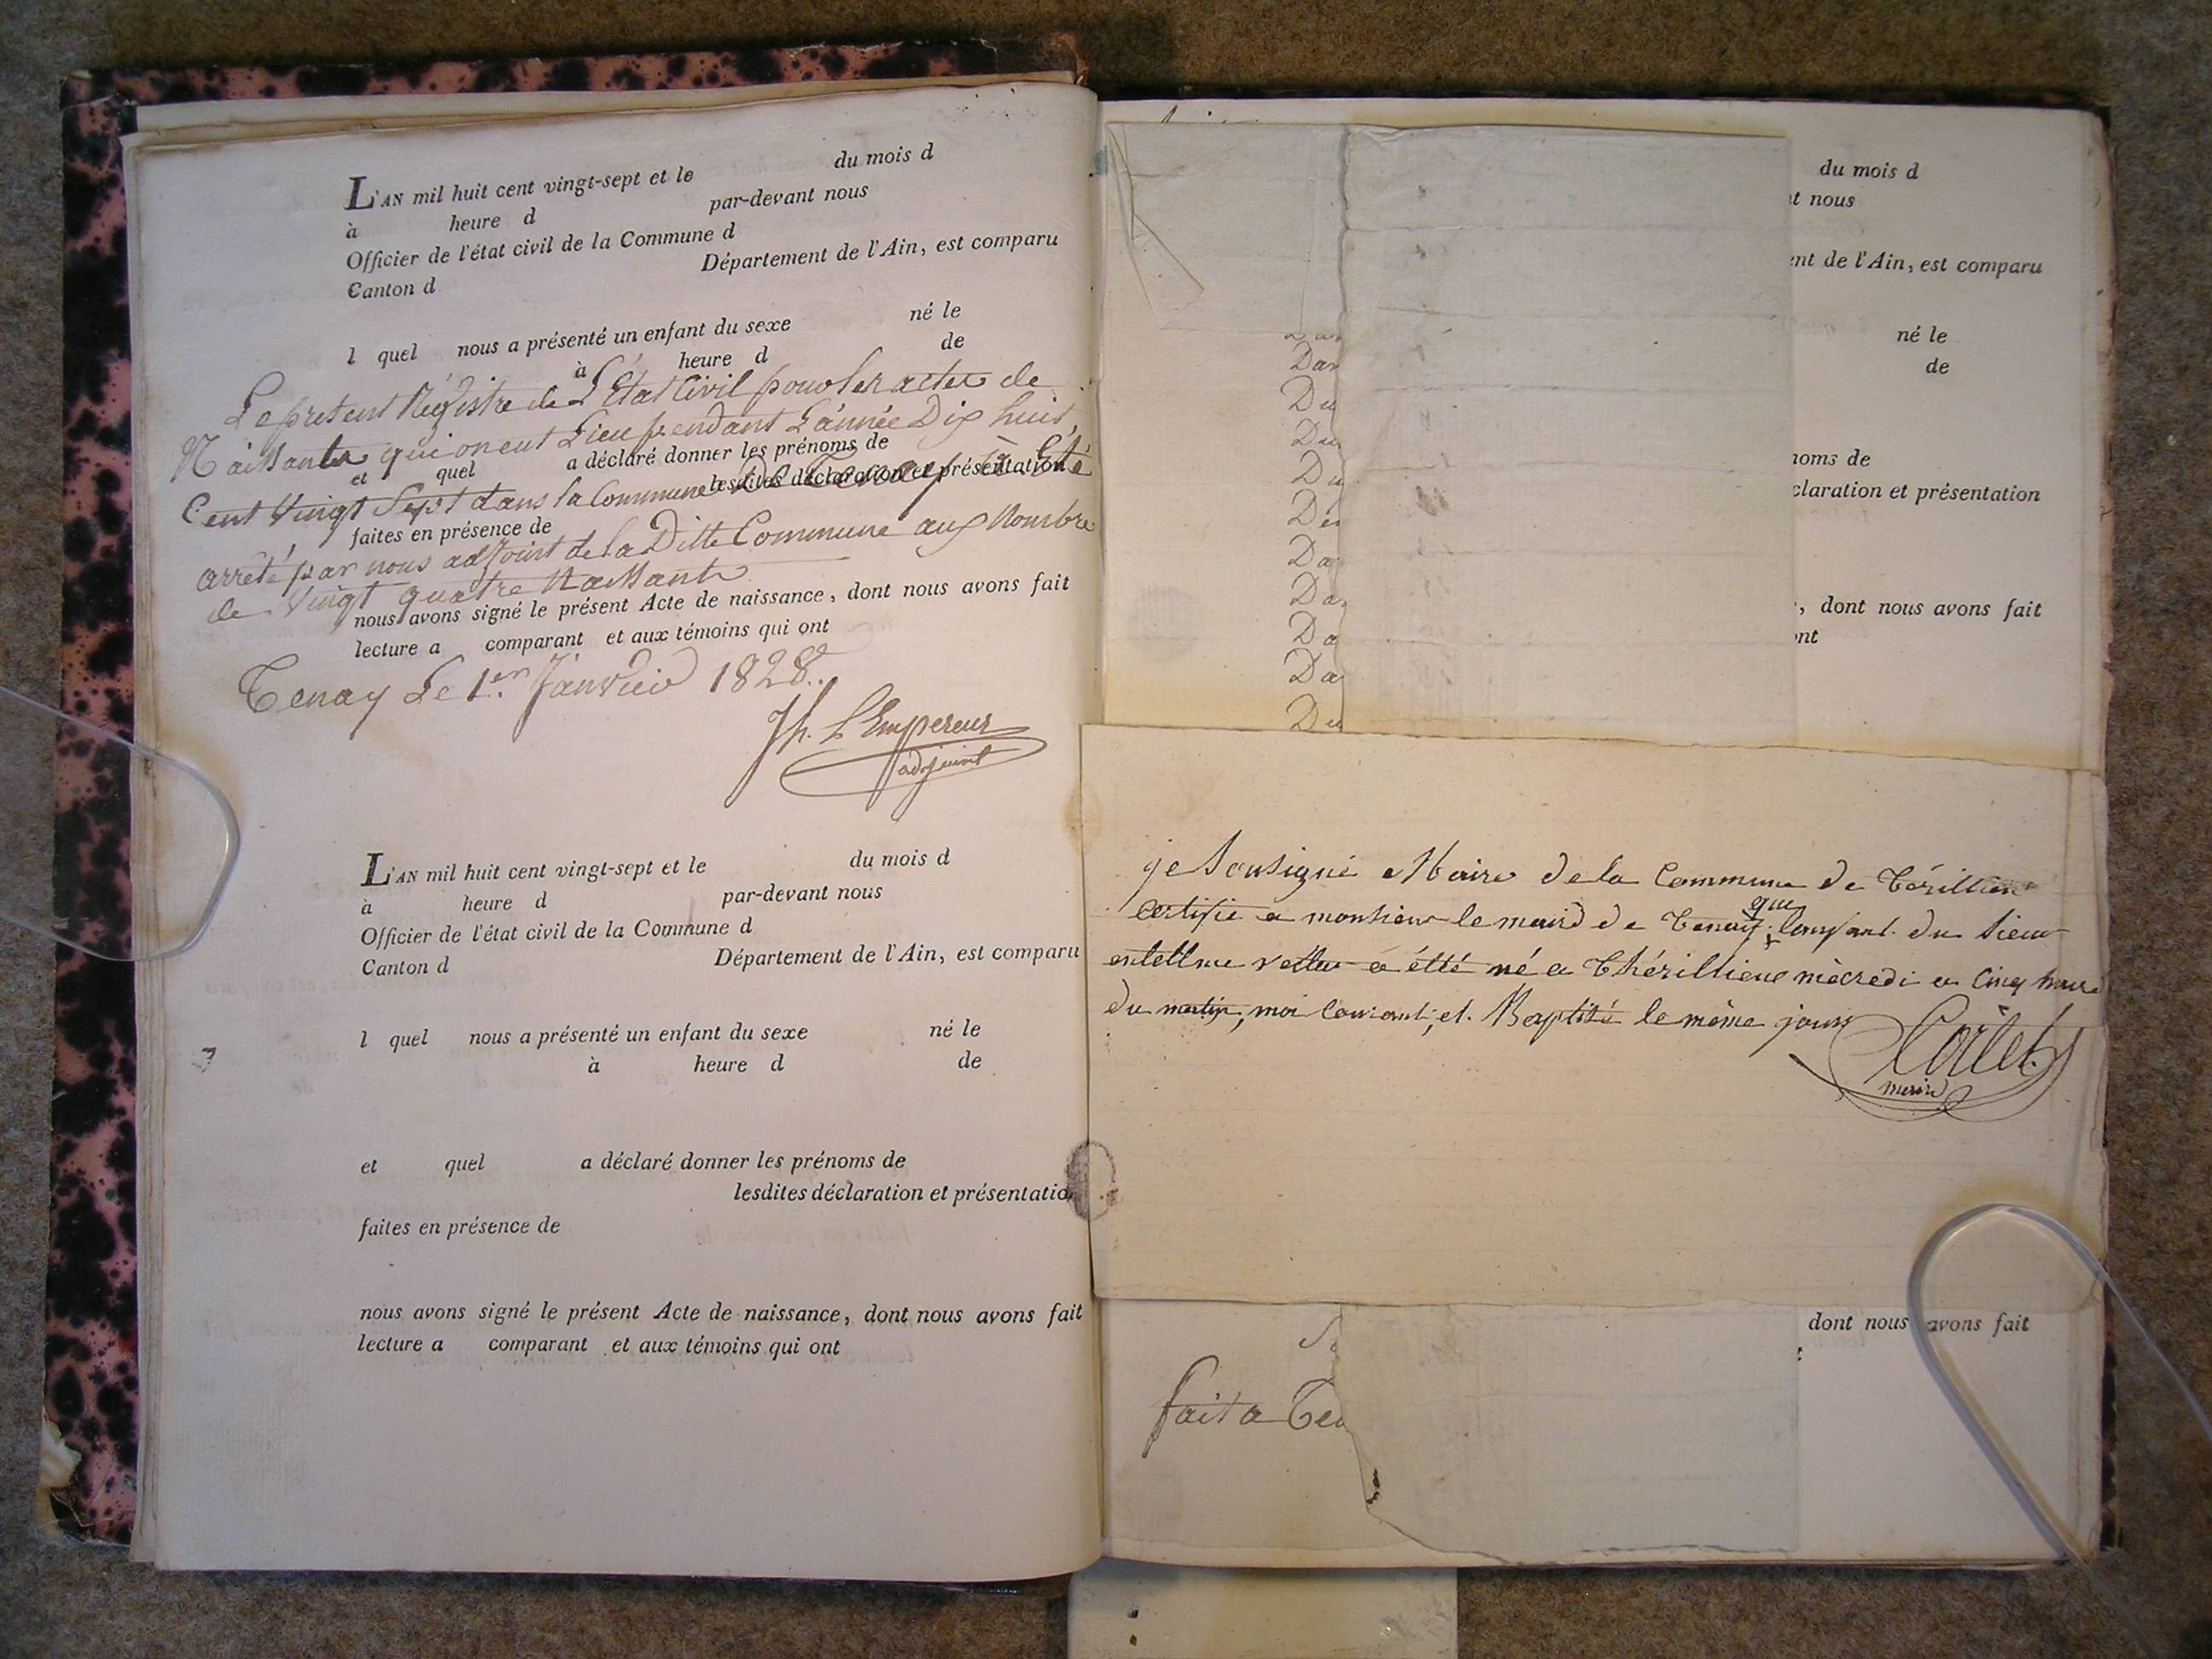 L'AN mil huit cent vingt-sept et le du mois d
à heure d par-devant nous
Officier de l'état civil de la Commune d
Canton d Département de l'Ain, est comparu
l quel nous a présenté un enfant du sexe né le
à heure d de
Le present Régistre de L'État Civil pour les actes de
Naissantes qui on eut Lieu pendant L'année Dix huit
et quel a déclaré donner les prénoms de
lesdites déclaration et présentation
Cent Vingt Sept dans la Commune De Tenay à été
faites en présence de
arreté par nous adjoint de la Ditte Commune aux Nombre
de Vingt quatre Naissante
nous avons signé le présent Acte de naissance, dont nous avons fait
lecture a comparant et aux témoins qui ont
Tenay Le 1er Janvier 1828.
Jh. L'Empereur
adjoint
L'AN mil huit cent vingt-sept et le du mois d
à heure d par-devant nous
Officier de l'état civil de la Commune d
Canton d Département de l'Ain, est comparu
l quel nous a présenté un enfant du sexe né le
à heure d de
et quel a déclaré donner les prénoms de
lesdites déclaration et présentation
faites en présence de
nous avons signé le présent Acte de naissance, dont nous avons fait
lecture a comparant et aux témoins qui ont
du mois d
t nous
ent de l'Ain, est comparu
né le
de
noms de
claration et présentation
, dont nous avons fait
ont
Dar
Du
Du
Du
Da
Da
Da
Da
Du
je Sousigné Maire de la Commune de
Certifie a monsieur le maire de Tenay que lenfant du Sieur
a étté né a mècredi a Cinq heure
du matin, moi Courant, et Baptisé le même jour
Cortet
maire
dont nous avons fait
fait a Ten